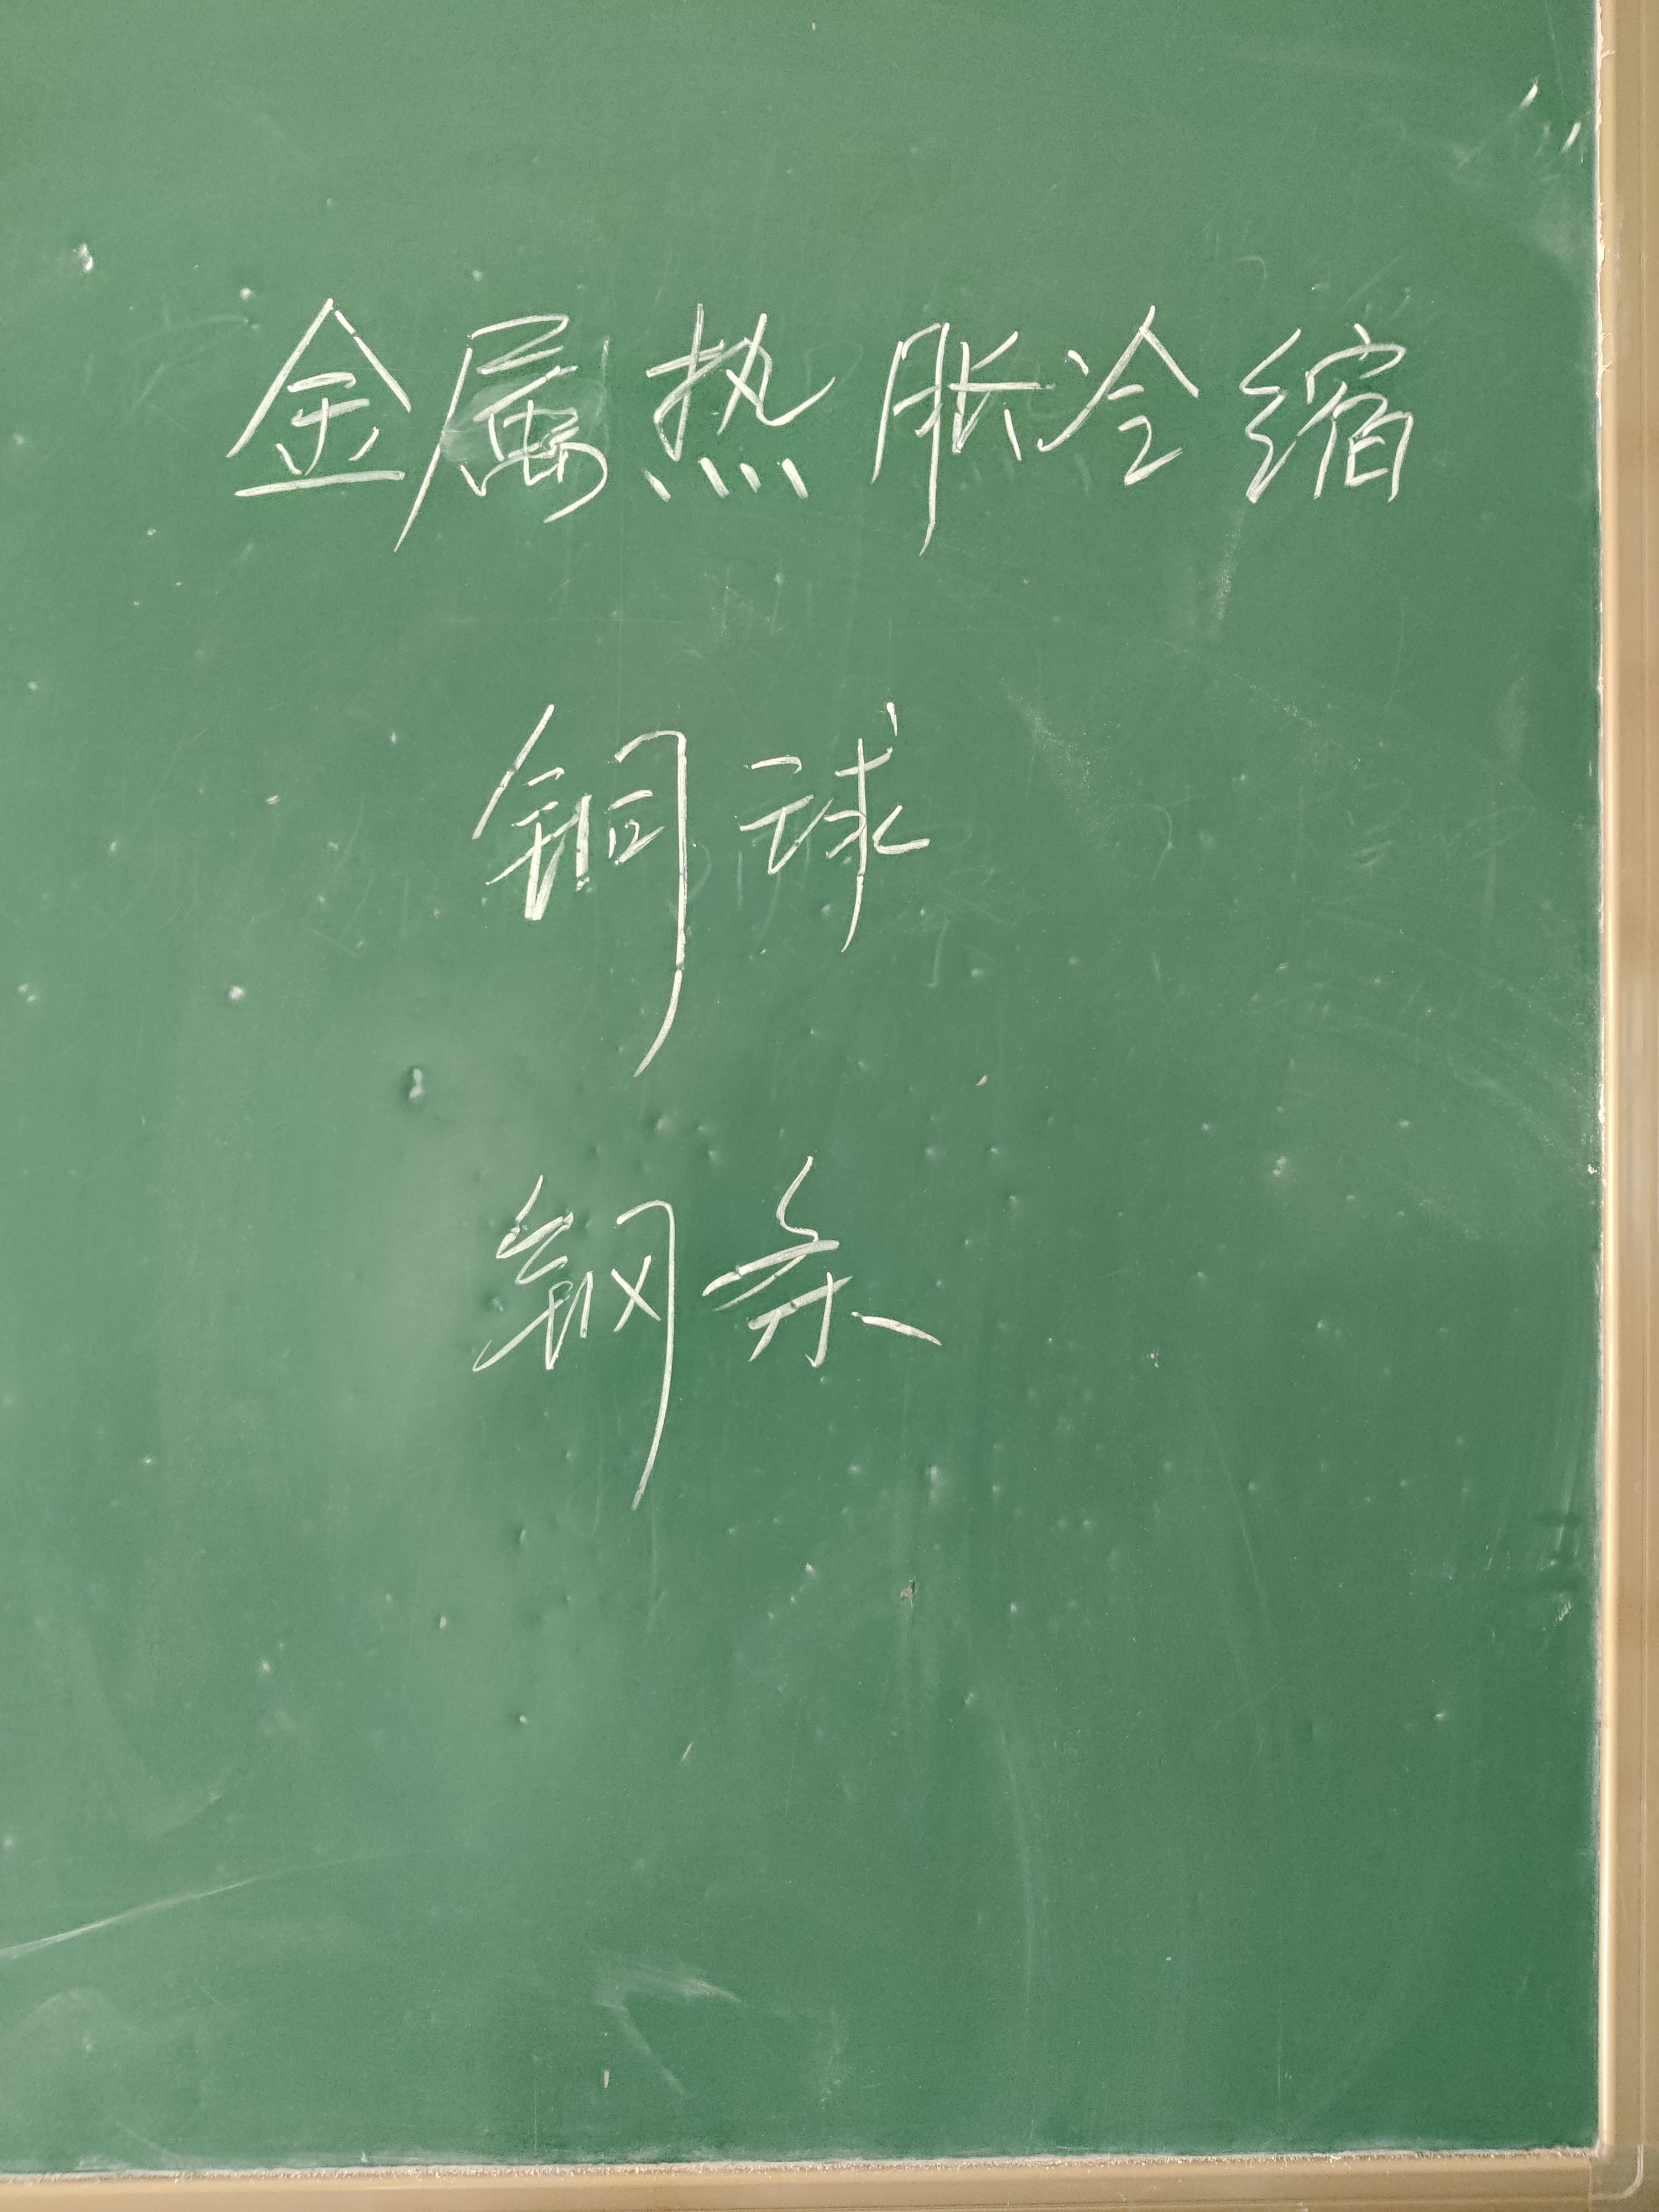 金属热胀冷缩
铜球
钢条